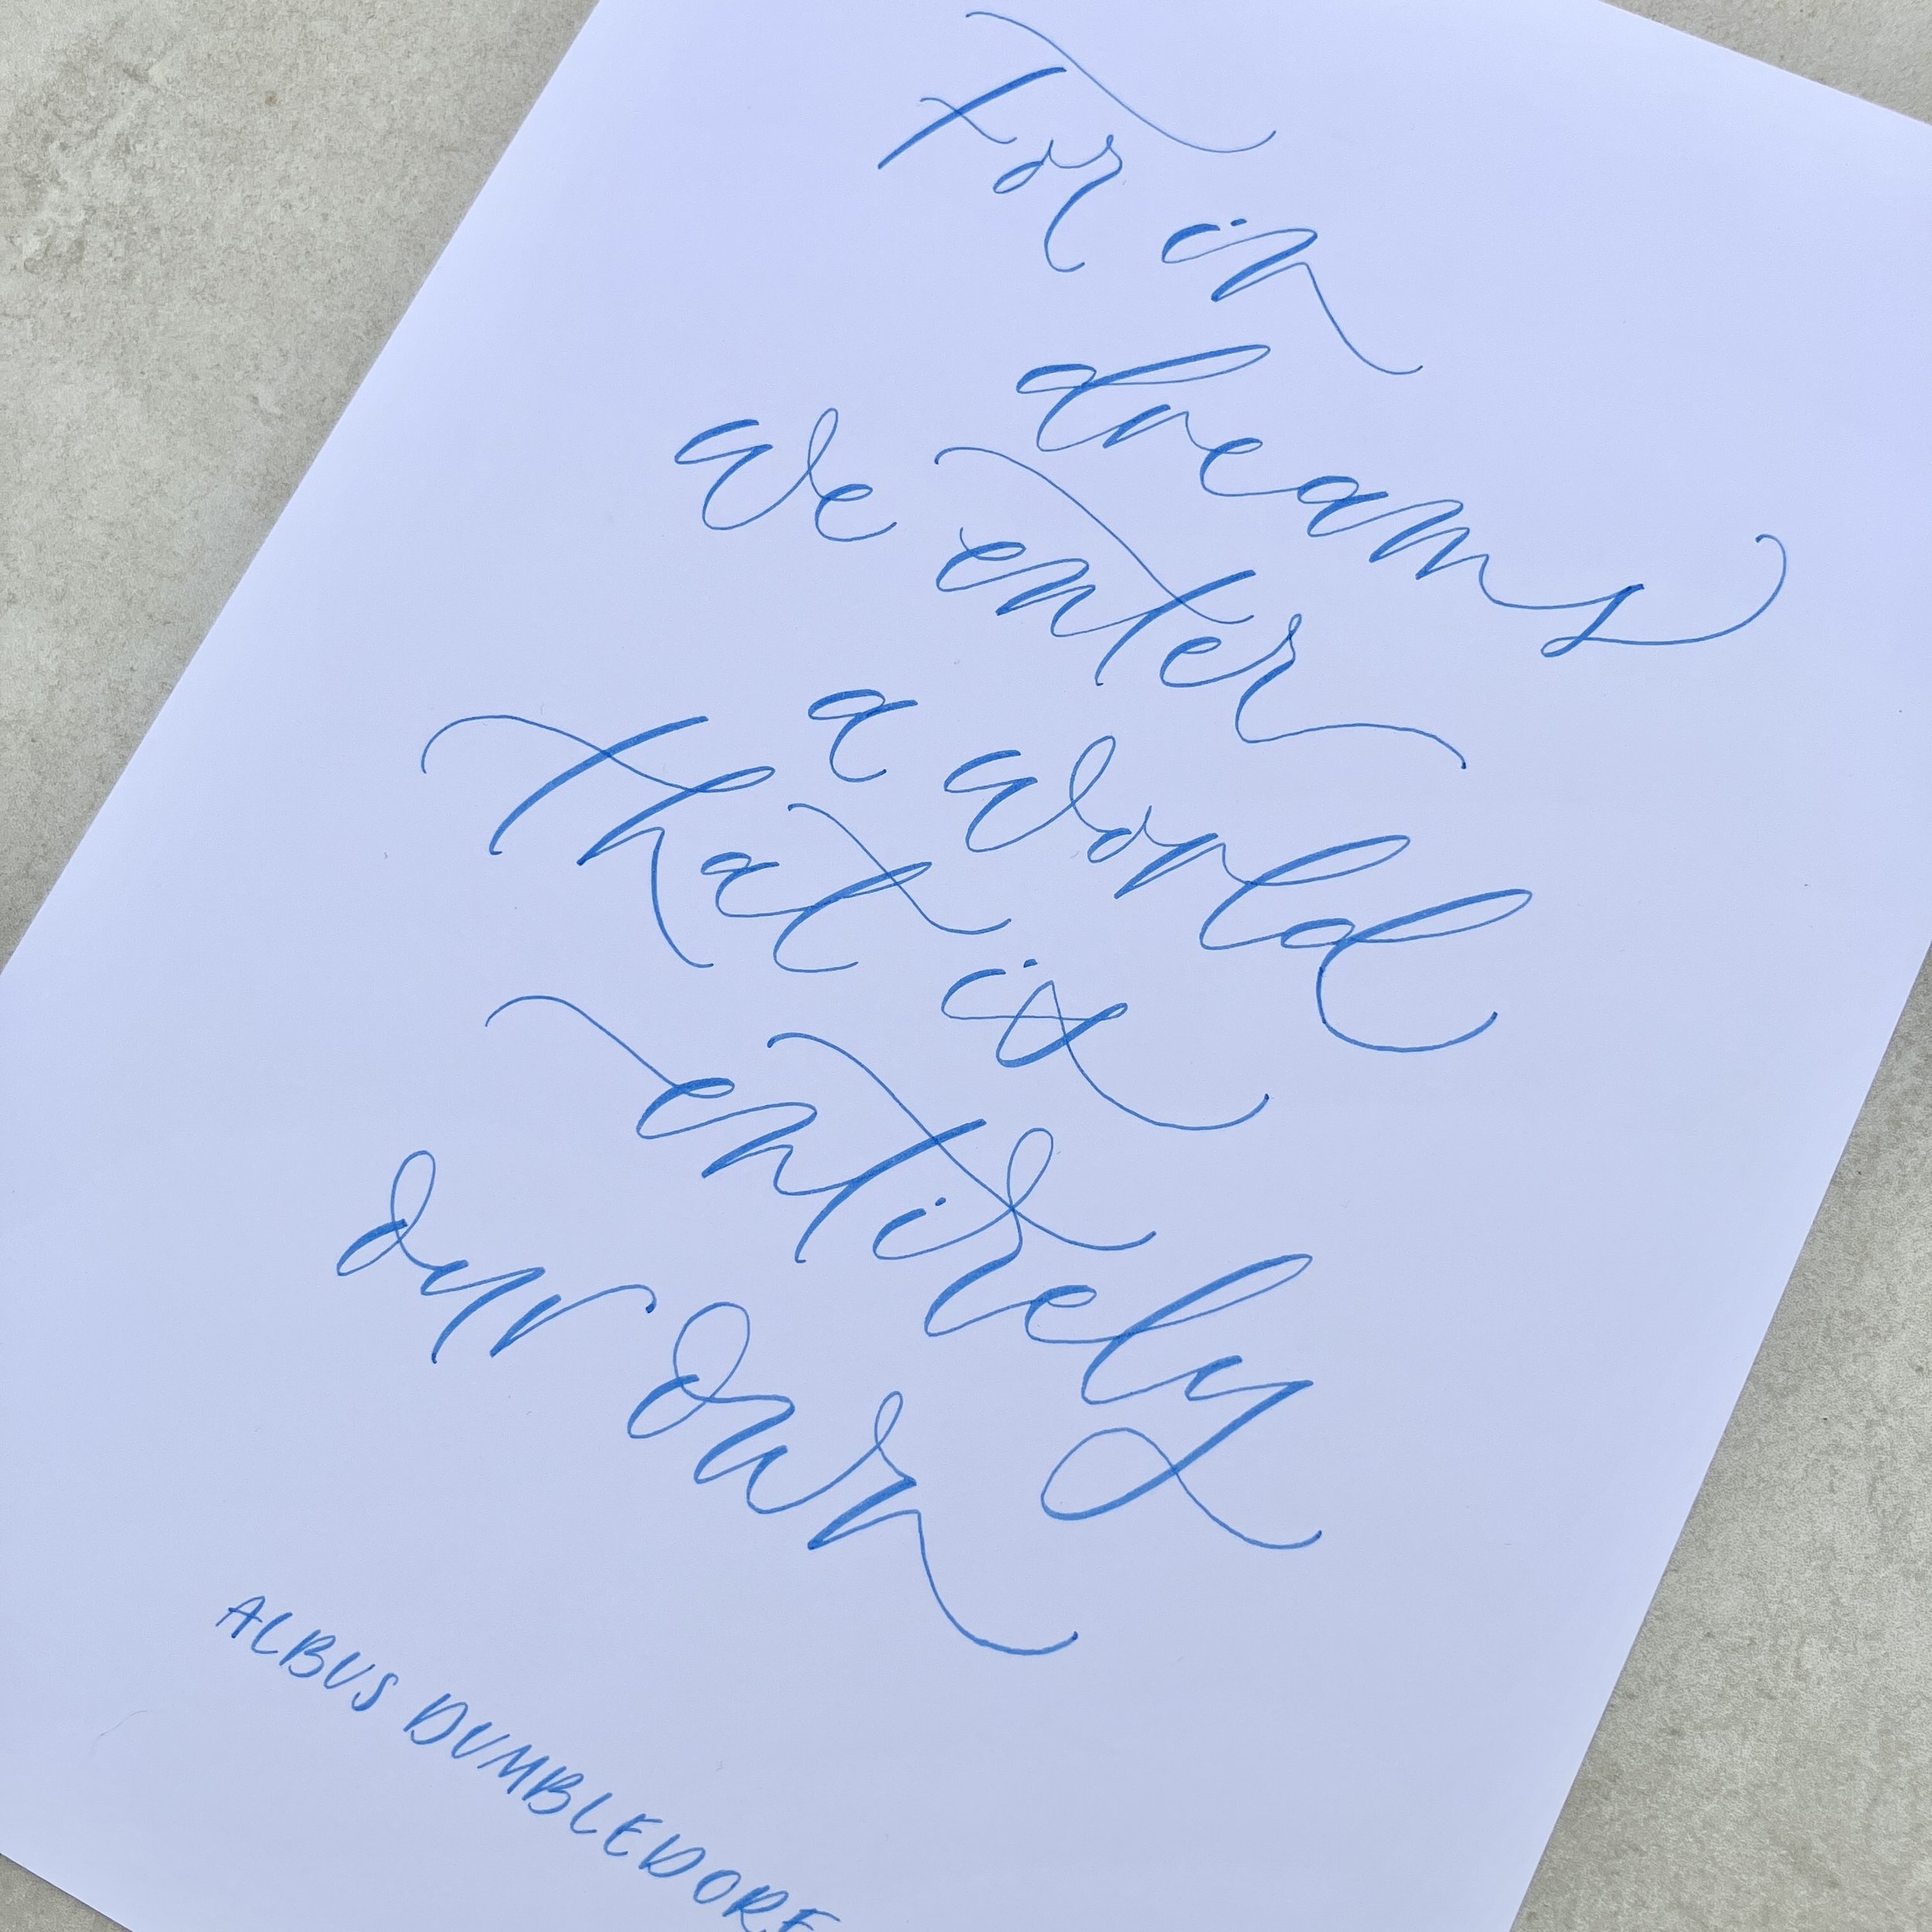 For in
dreams
we enter
a world
that is
entirely
our own
ALBUS DUMBLEDORE